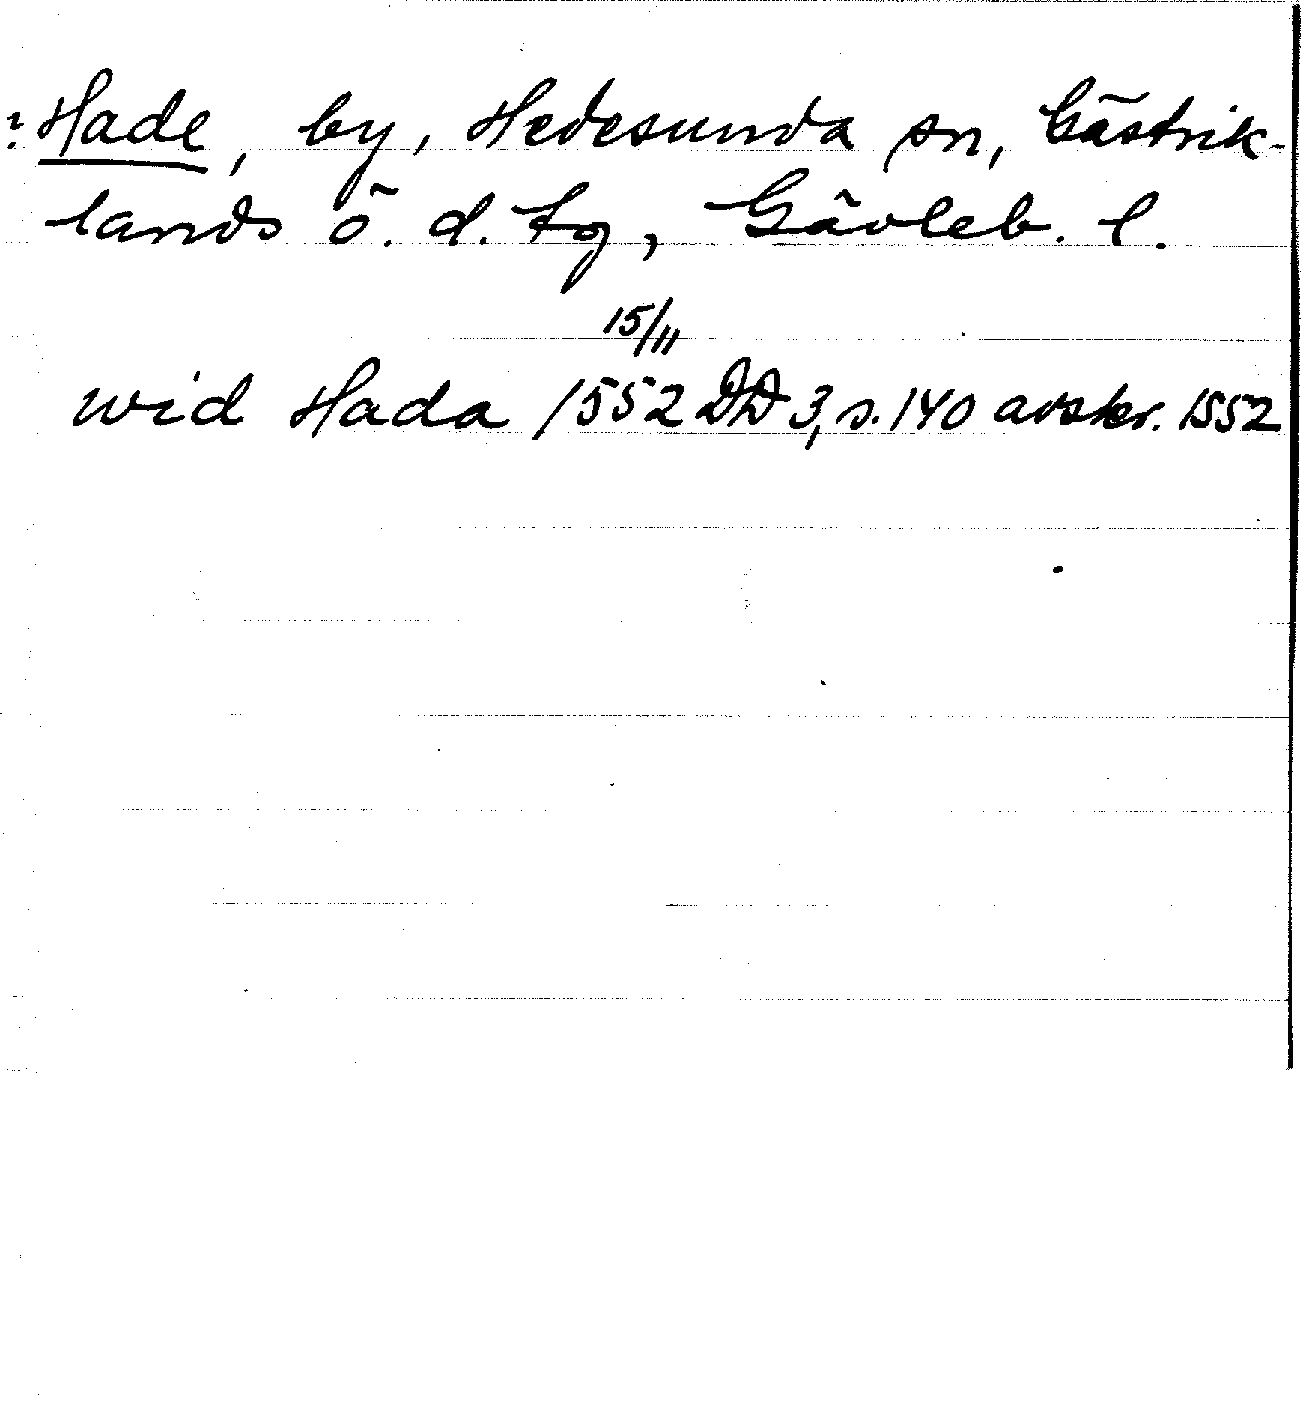 : Hade, by, Hedesunda sn, Gästrik-
lands ö. d. tg, Gävleb. l.
15/11
wid Hada 1552 DD 3, s. 140 avskr. 1552